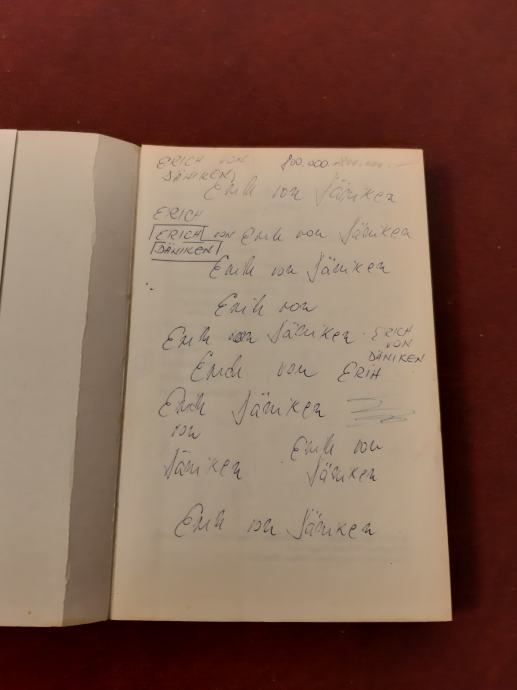 ERICH VON 800.000.
DÄNIKEN
Erich von Däniken
ERICH
ERICH VON Erich von Däniken
DÄNIKEN
Erich von Däniken
Erich von
Erich von Däniken ERICH
VON
DÄNIKEN
Erich von ERIH
Erich Däniken
von
Däniken
Erich von
Däniken
Erich von Däniken